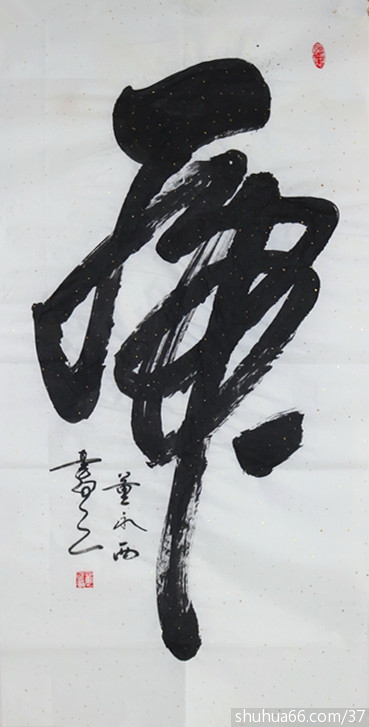 虎
董永西
書之
shuhua66.com/37